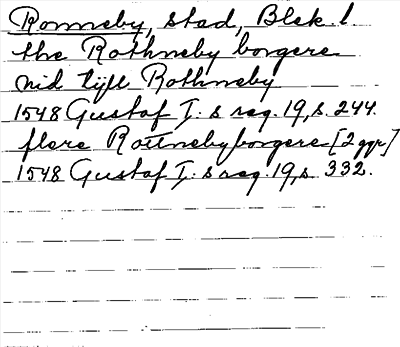 Ronneby, stad, Blek. l.
the Rothneby borgere
nid tijll Rothneby
1548 Gustaf I:s reg. 19, s. 244.
flere Rottnebyborgere [2 ggr]
1548 Gustaf I:s reg. 19, s. 332.